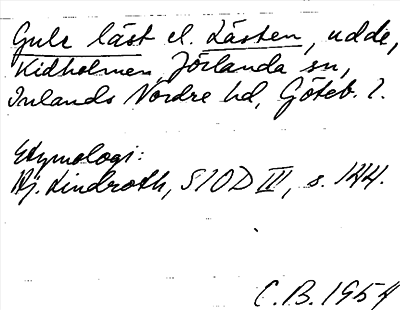 Gule läst el. Lästen, udde,
Kidholmen, Jörlanda sn,
Inlands Nordre hd, Göteb. l.
Etymologi:
Hj. Lindroth, SIOD III, s. 144.
C.B. 1954